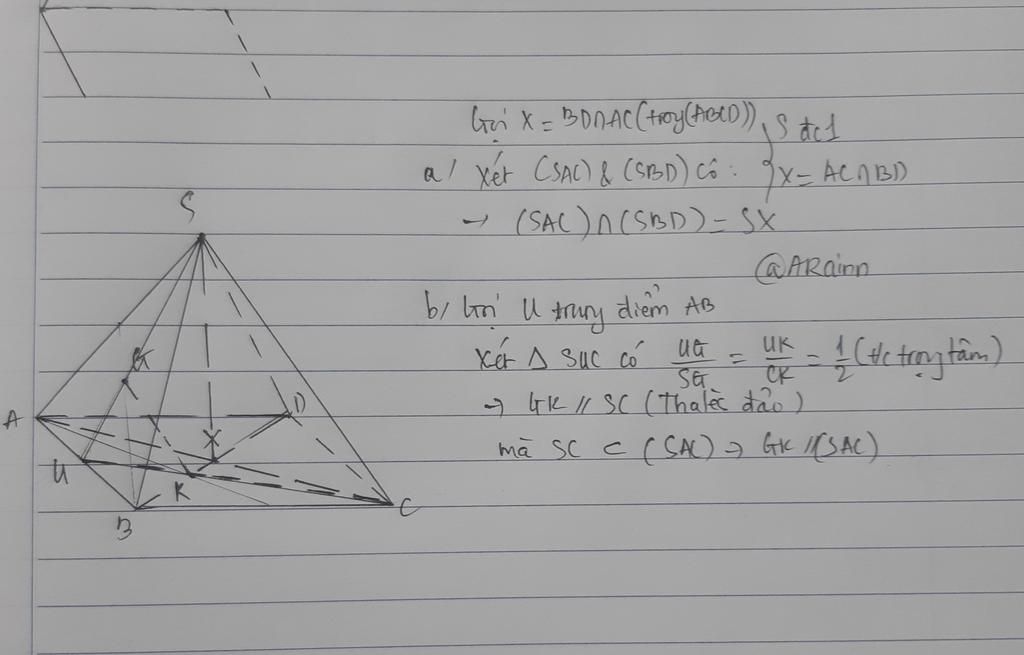 Gọi X = BD∩AC (trog (ABCD))
a/ Xét (SAC) & (SBD) có: { S đc1
X = AC∩BD
→ (SAC)∩(SBD) = SX
@ARainn
b/ Gọi U trung điểm AB
Xét Δ SUC có UG/SG = UK/CK = 1/2 (t/c trọng tâm)
→ GK // SC (Thalès đảo)
mà SC ⊂ (SAC) → GK // (SAC)
S
G
A
D
X
U
K
B
C